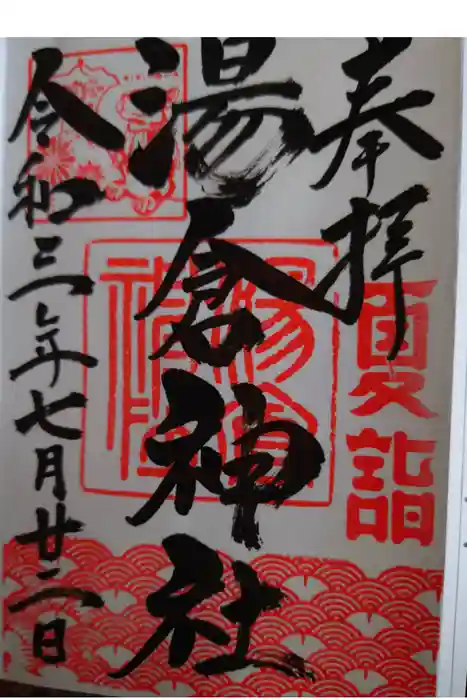 奉拝
夏詣
湯倉神社
湯倉神社
令和三年七月廿二日